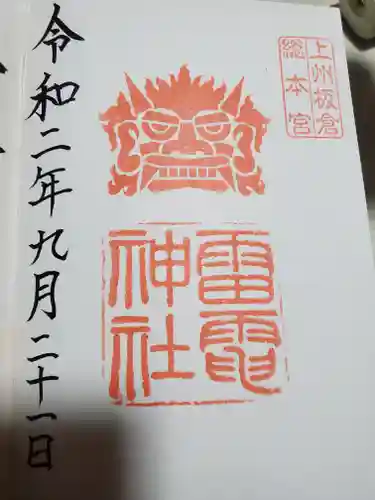 上州板倉
総本宮
雷電
神社
令和二年九月二十一日